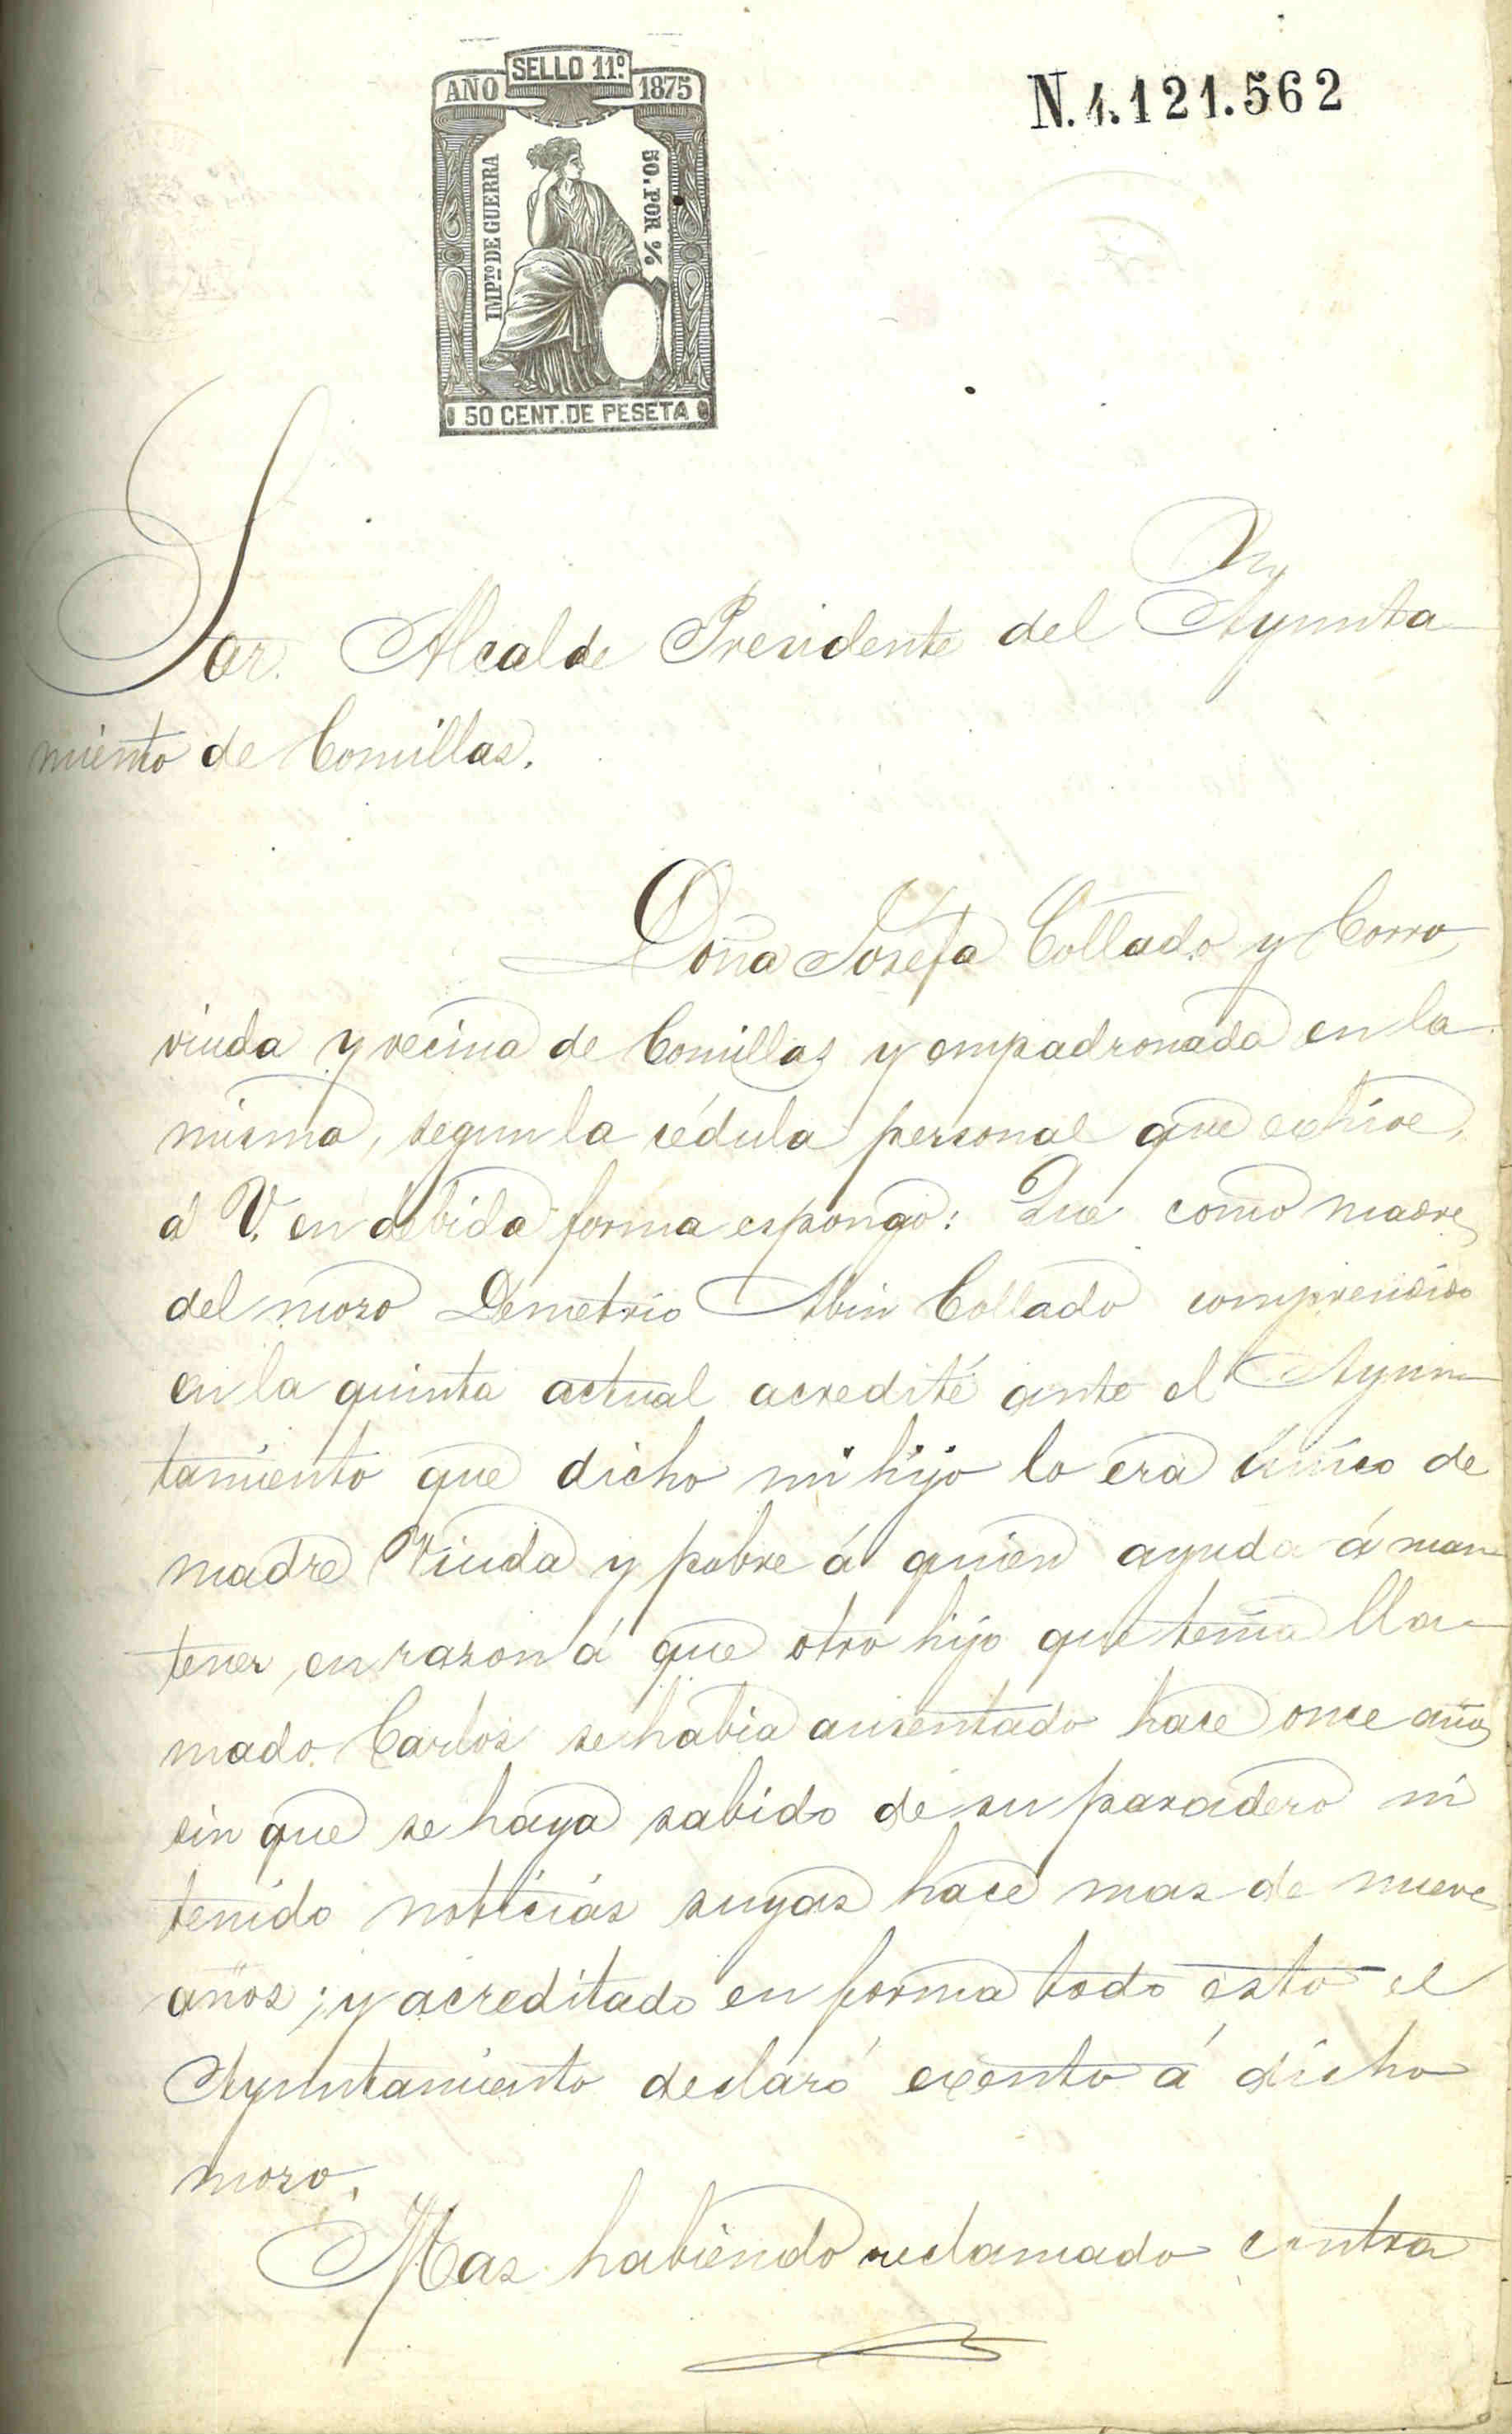 SELLO 11º
AÑO 1875
IMPTO DE GUERRA
50. POR %
50 CENT. DE PESETA
N.1.121.562
Sor. Alcalde Presidente del Ayunta
miento de Comillas.
Doña Josefa Collado y Corro,
viuda y vecina de Comillas y empadronada en la
misma, segun la cédula personal que exhive,
á V. en debida forma espongo: Que como madre
del moso Demetrio Abin Collado comprendido
en la quinta actual acredité ante el Ayun
tamiento que dicho mi hijo lo era único de
madre Viuda y pobre á quien ayuda á man
tener, en rason á que otro hijo que tenia lla
mado Carlos se habia ausentado hace once años
sin que se haya sabido de su paradero ni
tenido noticias suyas hace mas de nueve
años; y acreditado en forma todo esto el
Ayuntamiento declaró exento á dicho
moso.
Mas habiendo reclamado contra